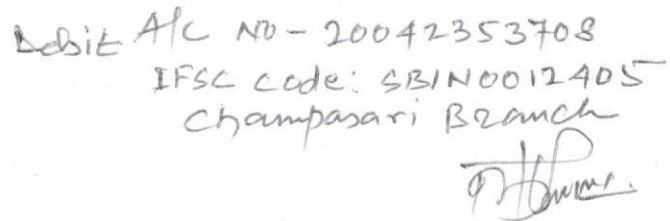 Debit A/C No - 20042353708
IFSC code: SBIN0012405
Champasari Branch